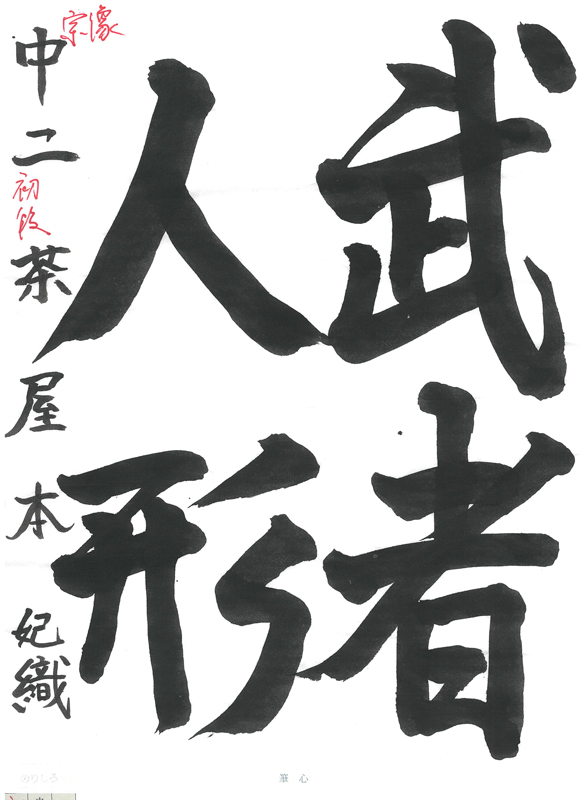 武者
人形
宗像
中二 初段 茶屋本妃織
のりしろ